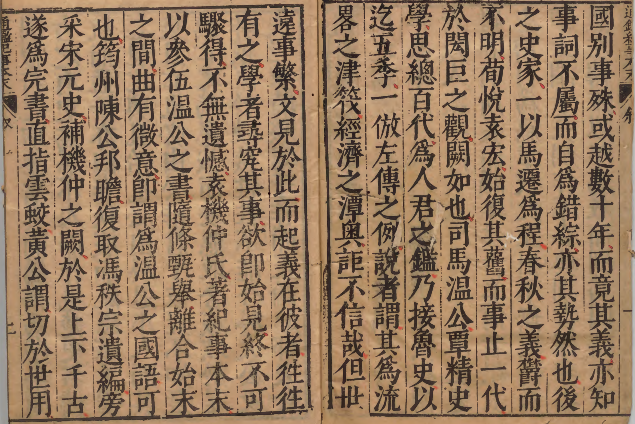 國別事殊或越數十年而竟其義亦知
事詞不屬而自爲錯綜亦其勢然也後
之史家一以馬遷爲程春秋之義欝而
不明荀悅袁宏始復其舊而事止一代
於閎巨之觀闕如也司馬温公覃精史
學思總百代爲人君之鑑乃接魯史以
迄五季一倣左傳之例說者謂其爲流
畧之津筏經濟之潭奥詎不信哉但世
遠事繁文見於此而起義在彼者徃徃
有之學者尋究其事欲即始見終不可
驟得不無遺憾袁機仲氏著紀事本末
以參伍温公之書隨條甄舉離合始末
之間曲有微意即謂爲温公之國語可
也筠州陳公邦瞻復取馮秩宗遺編旁
采宋元史補機仲之闕於是上下千古
遂爲完書直指雲蛟黄公謂切於世用